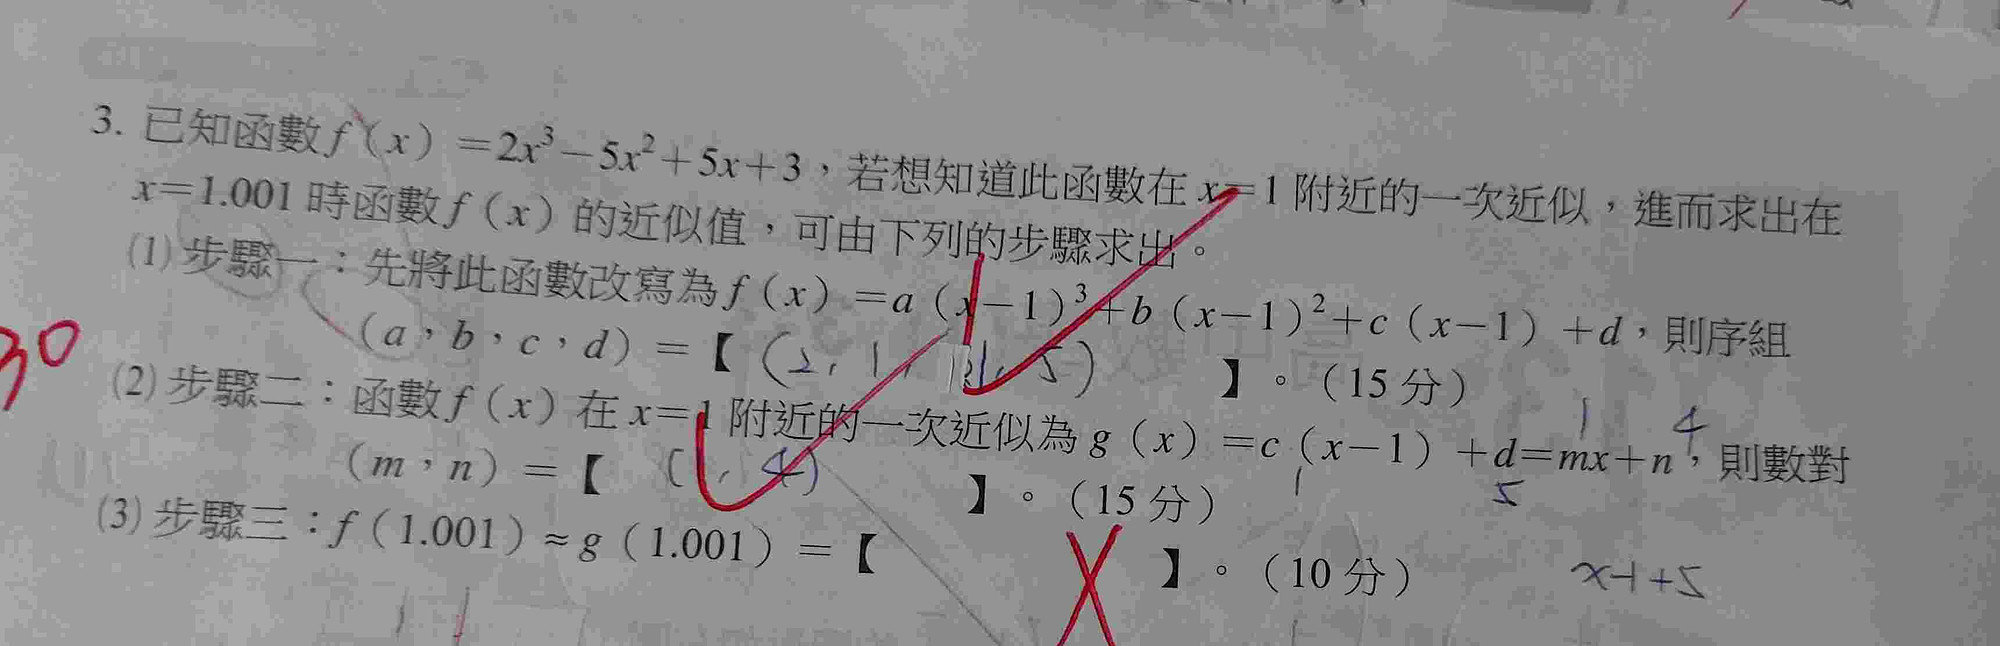 3. 已知函數 f(x)=2x³-5x²+5x+3,若想知道此函數在 x=1 附近的一次近似,進而求出在
x=1.001 時函數 f(x) 的近似值,可由下列的步驟求出。
(1) 步驟一:先將此函數改寫為 f(x)=a(x-1)³+b(x-1)²+c(x-1)+d,則序組
(a,b,c,d)=【 (2, 1, 1, 5) 】。(15 分)
30
(2) 步驟二:函數 f(x) 在 x=1 附近的一次近似為 g(x)=c(x-1)+d=mx+n,則數對
1 4
1 5
(m,n)=【 (1, 4) 】。(15 分)
(3) 步驟三:f(1.001)≈g(1.001)=【 】。(10 分)
x-1+5